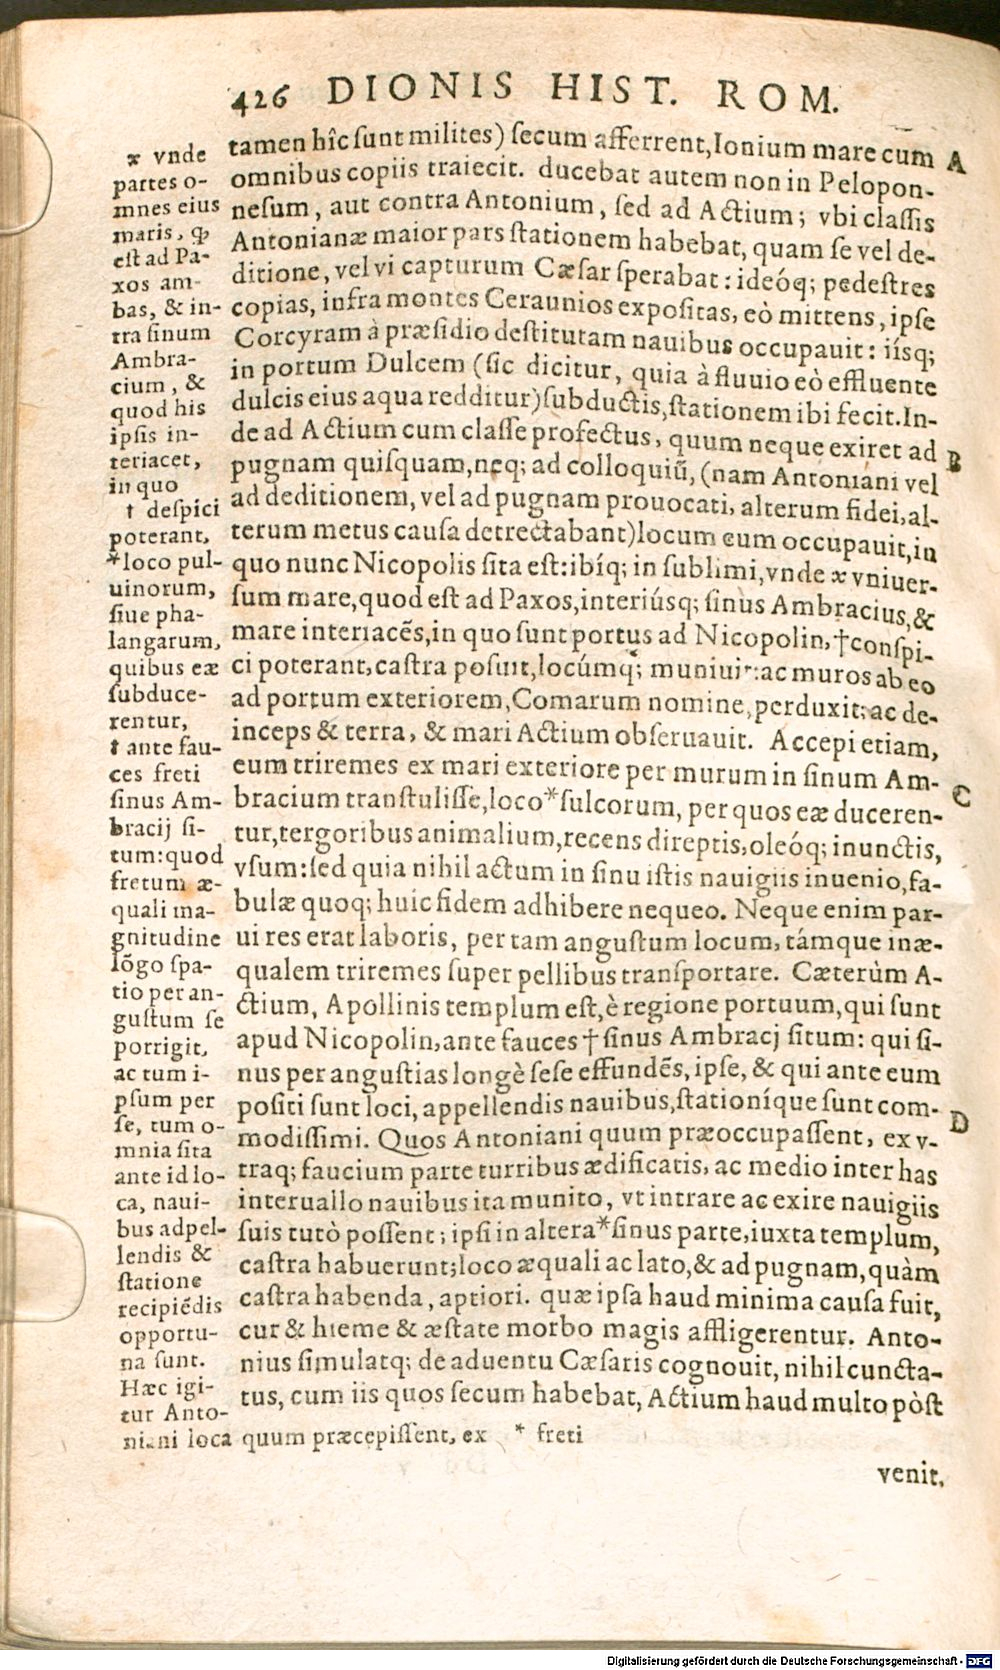 426 DIONIS HIST. ROM.
tamen hîc sunt milites) secum afferrent, Ionium mare cum A
omnibus copiis traiecit. ducebat autem non in Pelopon-
nesum, aut contra Antonium, sed ad Actium; vbi classis
Antonianæ maior pars stationem habebat, quam se vel de-
ditione, vel vi capturum Cæsar sperabat: ideóq; pedestres
copias, infra montes Ceraunios expositas, eò mittens, ipse
Corcyram à præsidio destitutam nauibus occupauit: iísq;
in portum Dulcem (sic dicitur, quia à fluuio eò effluente
dulcis eius aqua redditur) subductis, stationem ibi fecit. In-
de ad Actium cum classe profectus, quum neque exiret ad B
pugnam quisquam, neq; ad colloquiũ, (nam Antoniani vel
ad deditionem, vel ad pugnam prouocati, alterum fidei, al-
terum metus causa detrectabant) locum eum occupauit, in
quo nunc Nicopolis sita est: ibíq; in sublimi, vnde * vniuer-
sum mare, quod est ad Paxos, interiúsq; sinus Ambracius, &
mare interiacẽs, in quo sunt portus ad Nicopolin, † conspi-
ci poterant, castra posuit, locúmq; muniuit: ac muros ab eo
ad portum exteriorem, Comarum nomine, perduxit: ac de-
inceps & terra, & mari Actium obseruauit. Accepi etiam,
eum triremes ex mari exteriore per murum in sinum Am- C
bracium transtulisse, loco * sulcorum, per quos eæ duceren-
tur, tergoribus animalium, recens direptis, oleóq; inunctis,
vsum: sed quia nihil actum in sinu istis nauigiis inuenio, fa-
bulæ quoq; huic fidem adhibere nequeo. Neque enim par-
ui res erat laboris, per tam angustum locum, támque inæ-
qualem triremes super pellibus transportare. Cæterùm A-
ctium, Apollinis templum est, è regione portuum, qui sunt
apud Nicopolin, ante fauces † sinus Ambracj situm: qui si-
nus per angustias longè sese effundẽs, ipse, & qui ante eum
positi sunt loci, appellendis nauibus, stationíque sunt com- D
modissimi. Quos Antoniani quum præoccupassent, ex v-
traq; faucium parte turribus ædificatis, ac medio inter has
interuallo nauibus ita munito, vt intrare ac exire nauigiis
suis tutò possent; ipsi in altera * sinus parte, iuxta templum,
castra habuerunt; loco æquali ac lato, & ad pugnam, quàm
castra habenda, aptiori. quæ ipsa haud minima causa fuit,
cur & hieme & æstate morbo magis affligerentur. Anto-
nius simulatq; de aduentu Cæsaris cognouit, nihil cuncta-
tus, cum iis quos secum habebat, Actium haud multo pòst
venit.
* vnde
partes o-
mnes eius
maris, ꝙ
est ad Pa-
xos am-
bas, & in-
tra sinum
Ambra-
cium, &
quod his
ipsis in-
teriacet,
in quo
† despici
poterant,
* loco pul-
uinorum,
siue pha-
langarum,
quibus eæ
subduce-
rentur,
† ante fau-
ces freti
sinus Am-
bracij si-
tum: quod
fretum æ-
quali ma-
gnitudine
lõgo spa-
tio per an-
gustum se
porrigit,
ac tum i-
psum per
se, tum o-
mnia sita
ante id lo-
ca, naui-
bus adpel-
lendis &
statione
recipiẽdis
opportu-
na sunt.
Hæc igi-
tur Anto-
niani loca quum præcepissent, ex * freti
Digitalisierung gefördert durch die Deutsche Forschungsgemeinschaft - DFG